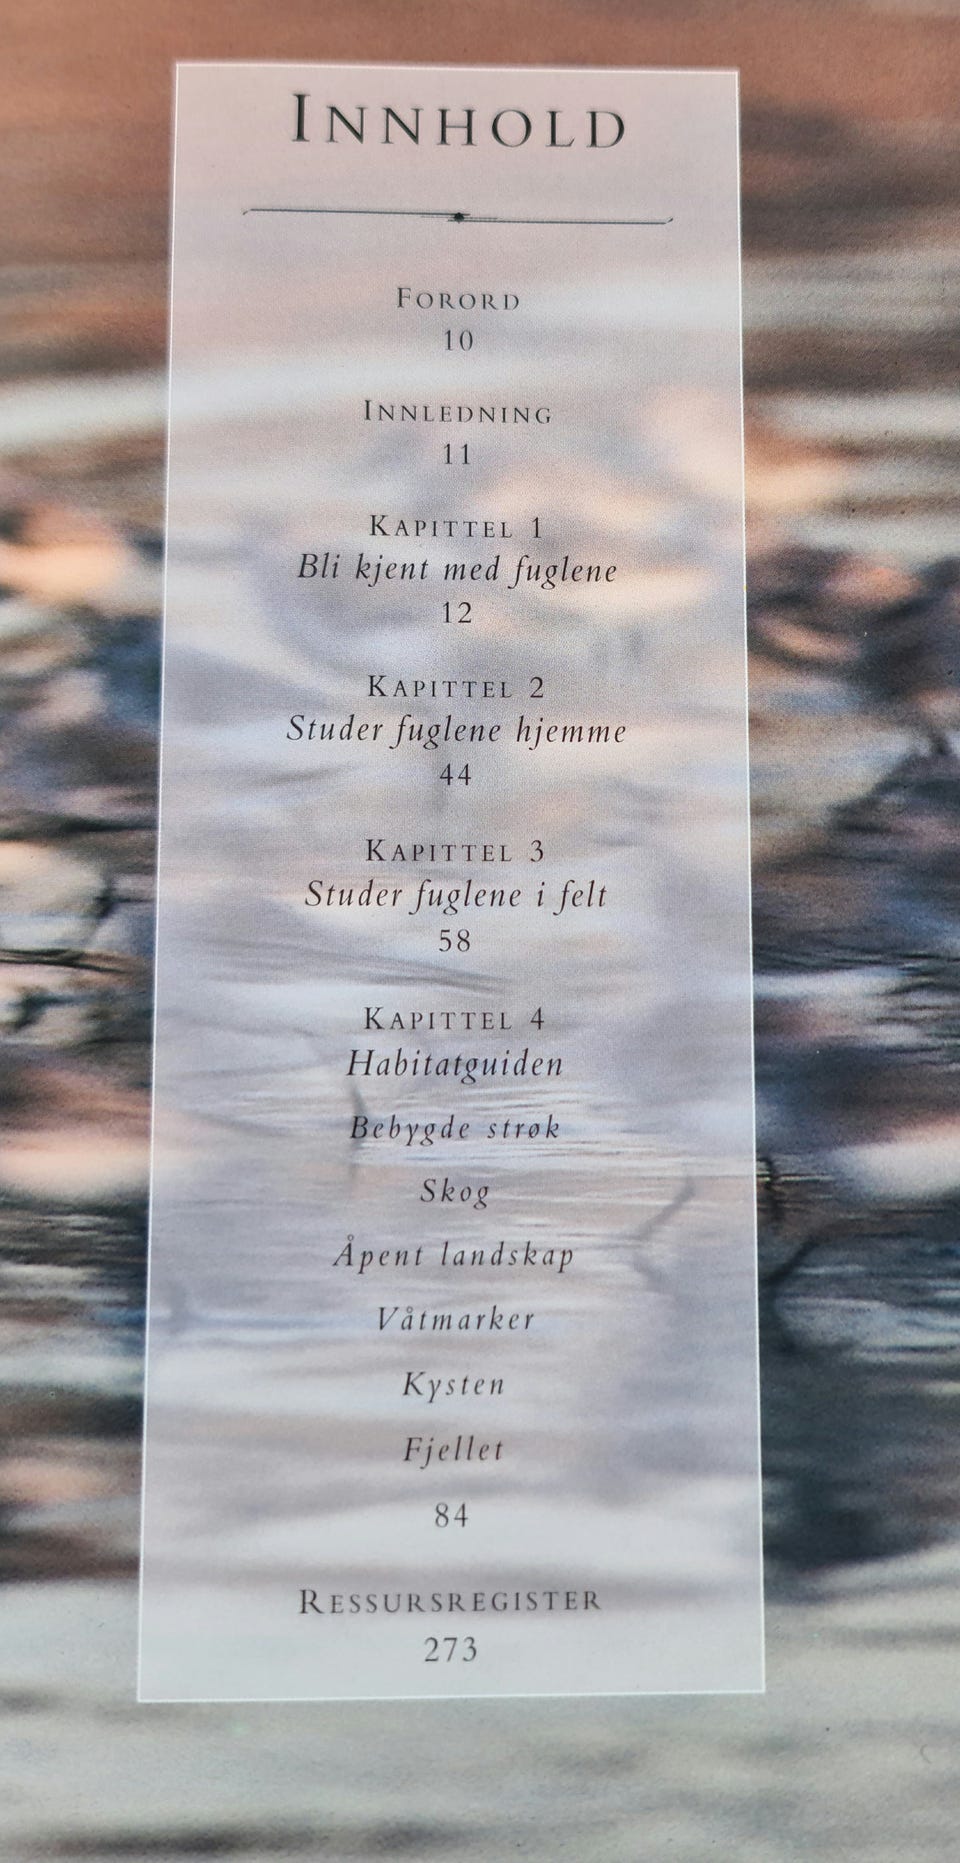 INNHOLD
FORORD
10
INNLEDNING
11
KAPITTEL 1
Bli kjent med fuglene
12
KAPITTEL 2
Studer fuglene hjemme
44
KAPITTEL 3
Studer fuglene i felt
58
KAPITTEL 4
Habitatguiden
Bebygde strøk
Skog
Åpent landskap
Våtmarker
Kysten
Fjellet
84
RESSURSREGISTER
273